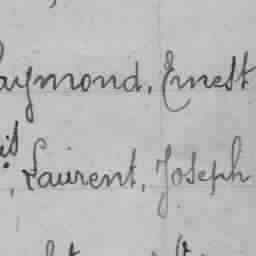 aymond, Ernest
, Laurent, Joseph